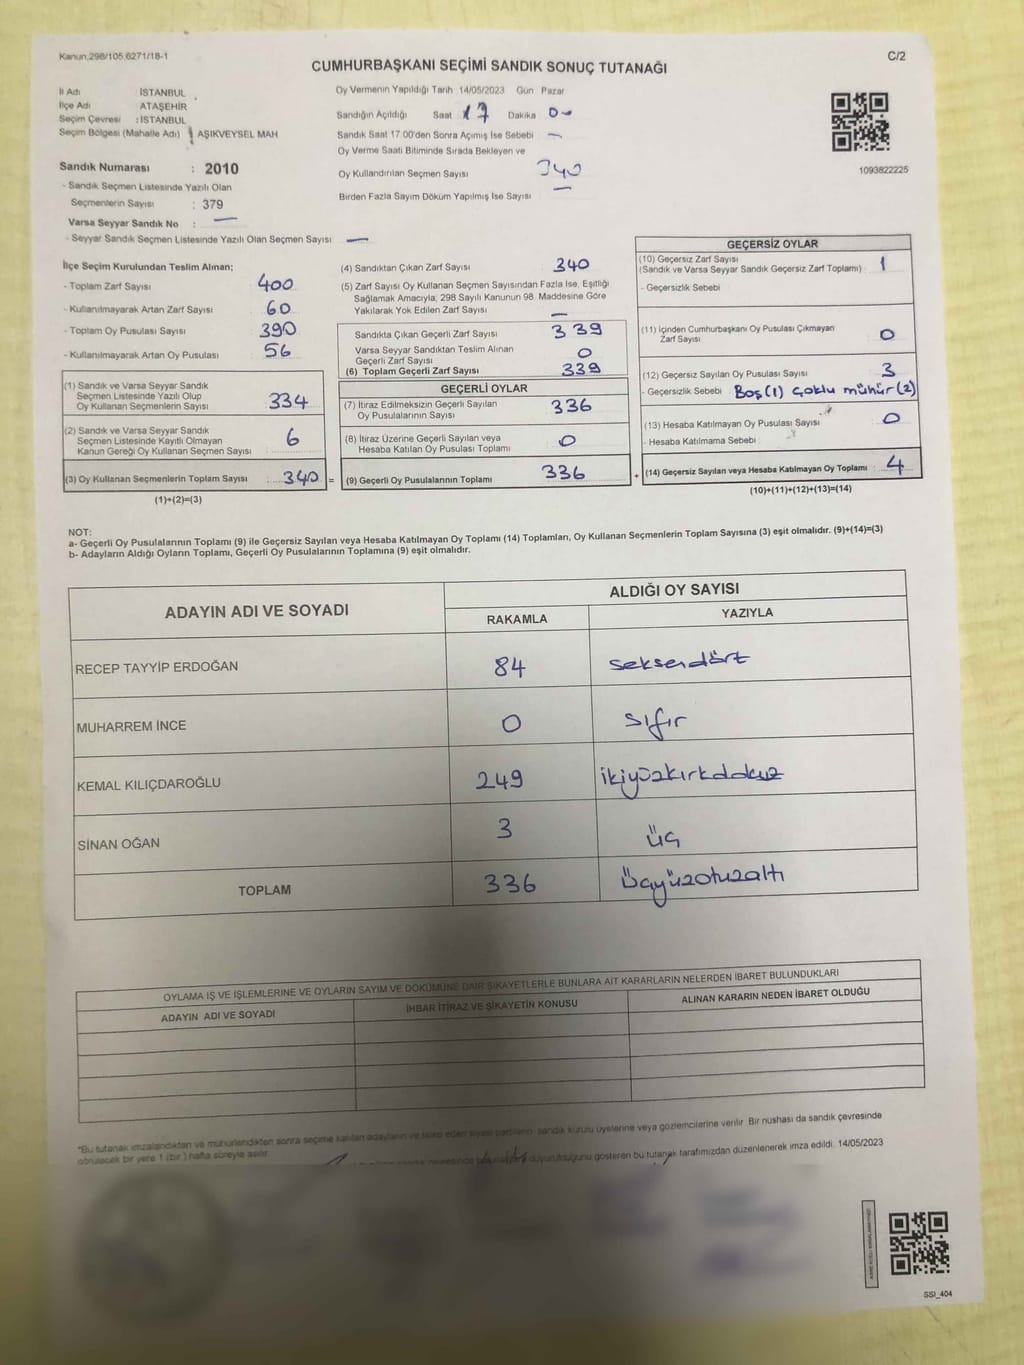 Kanun,298/105,6271/18-1
C/2
CUMHURBAŞKANI SEÇİMİ SANDIK SONUÇ TUTANAĞI
İl Adı : İSTANBUL
İlçe Adı : ATAŞEHİR
Seçim Çevresi : İSTANBUL
Seçim Bölgesi (Mahalle Adı) : AŞIKVEYSEL MAH
Sandık Numarası : 2010
- Sandık Seçmen Listesinde Yazılı Olan
Seçmenlerin Sayısı : 379
Varsa Seyyar Sandık No : —
- Seyyar Sandık Seçmen Listesinde Yazılı Olan Seçmen Sayısı : —
Oy Vermenin Yapıldığı Tarih 14/05/2023 Gün Pazar
Sandığın Açıldığı Saat 17 Dakika 0-
Sandık Saat 17:00'den Sonra Açmış İse Sebebi —
Oy Verme Saati Bitiminde Sırada Bekleyen ve
Oy Kullandırılan Seçmen Sayısı 340
Birden Fazla Sayım Döküm Yapılmış İse Sayısı —
1093822225
İlçe Seçim Kurulundan Teslim Alınan;
- Toplam Zarf Sayısı : 400
- Kullanılmayarak Artan Zarf Sayısı : 60
- Toplam Oy Pusulası Sayısı : 390
- Kullanılmayarak Artan Oy Pusulası : 56
(1) Sandık ve Varsa Seyyar Sandık
Seçmen Listesinde Yazılı Olup
Oy Kullanan Seçmenlerin Sayısı : 334
(2) Sandık ve Varsa Seyyar Sandık
Seçmen Listesinde Kayıtlı Olmayan
Kanun Gereği Oy Kullanan Seçmen Sayısı : 6
(3) Oy Kullanan Seçmenlerin Toplam Sayısı : 340
(1)+(2)=(3)
(4) Sandıktan Çıkan Zarf Sayısı 340
(5) Zarf Sayısı Oy Kullanan Seçmen Sayısından Fazla İse, Eşitliği
Sağlamak Amacıyla; 298 Sayılı Kanunun 98. Maddesine Göre
Yakılarak Yok Edilen Zarf Sayısı —
Sandıkta Çıkan Geçerli Zarf Sayısı 339
Varsa Seyyar Sandıktan Teslim Alınan
Geçerli Zarf Sayısı 0
(6) Toplam Geçerli Zarf Sayısı 339
GEÇERLİ OYLAR
(7) İtiraz Edilmeksizin Geçerli Sayılan
Oy Pusulalarının Sayısı 336
(8) İtiraz Üzerine Geçerli Sayılan veya
Hesaba Katılan Oy Pusulası Toplamı 0
= (9) Geçerli Oy Pusulalarının Toplamı 336
GEÇERSİZ OYLAR
(10) Geçersiz Zarf Sayısı
(Sandık ve Varsa Seyyar Sandık Geçersiz Zarf Toplamı) : 1
- Geçersizlik Sebebi
(11) İçinden Cumhurbaşkanı Oy Pusulası Çıkmayan
Zarf Sayısı : 0
(12) Geçersiz Sayılan Oy Pusulası Sayısı : 3
- Geçersizlik Sebebi : Boş(1) çoklu mühür(2)
(13) Hesaba Katılmayan Oy Pusulası Sayısı : 0
- Hesaba Katılmama Sebebi :
+ (14) Geçersiz Sayılan veya Hesaba Katılmayan Oy Toplamı : 4
(10)+(11)+(12)+(13)=(14)
NOT:
a- Geçerli Oy Pusulalarının Toplamı (9) ile Geçersiz Sayılan veya Hesaba Katılmayan Oy Toplamı (14) Toplamları, Oy Kullanan Seçmenlerin Toplam Sayısına (3) eşit olmalıdır. (9)+(14)=(3)
b- Adayların Aldığı Oyların Toplamı, Geçerli Oy Pusulalarının Toplamına (9) eşit olmalıdır.
ADAYIN ADI VE SOYADI
ALDIĞI OY SAYISI
RAKAMLA YAZIYLA
RECEP TAYYİP ERDOĞAN 84 seksendört
MUHARREM İNCE 0 sıfır
KEMAL KILIÇDAROĞLU 249 ikiyüzkırkdokuz
SİNAN OĞAN 3 üç
TOPLAM 336 üçyüzotuzaltı
OYLAMA İŞ VE İŞLEMLERİNE VE OYLARIN SAYIM VE DÖKÜMÜNE DAİR ŞİKAYETLERLE BUNLARA AİT KARARLARIN NELERDEN İBARET BULUNDUKLARI
ADAYIN ADI VE SOYADI İHBAR İTİRAZ VE ŞİKAYETİN KONUSU ALINAN KARARIN NEDEN İBARET OLDUĞU
*Bu tutanak imzalandıktan ve mühürlendikten sonra seçime katılan adayların ve talep eden siyasi partilerin sandık kurulu üyelerine veya gözlemcilerine verilir. Bir nüshası da sandık çevresinde
görülecek bir yere 1 (bir) hafta süreyle asılır.
duyurulduğunu gösteren bu tutanak tarafımızdan düzenlenerek imza edildi. 14/05/2023
SSI_404